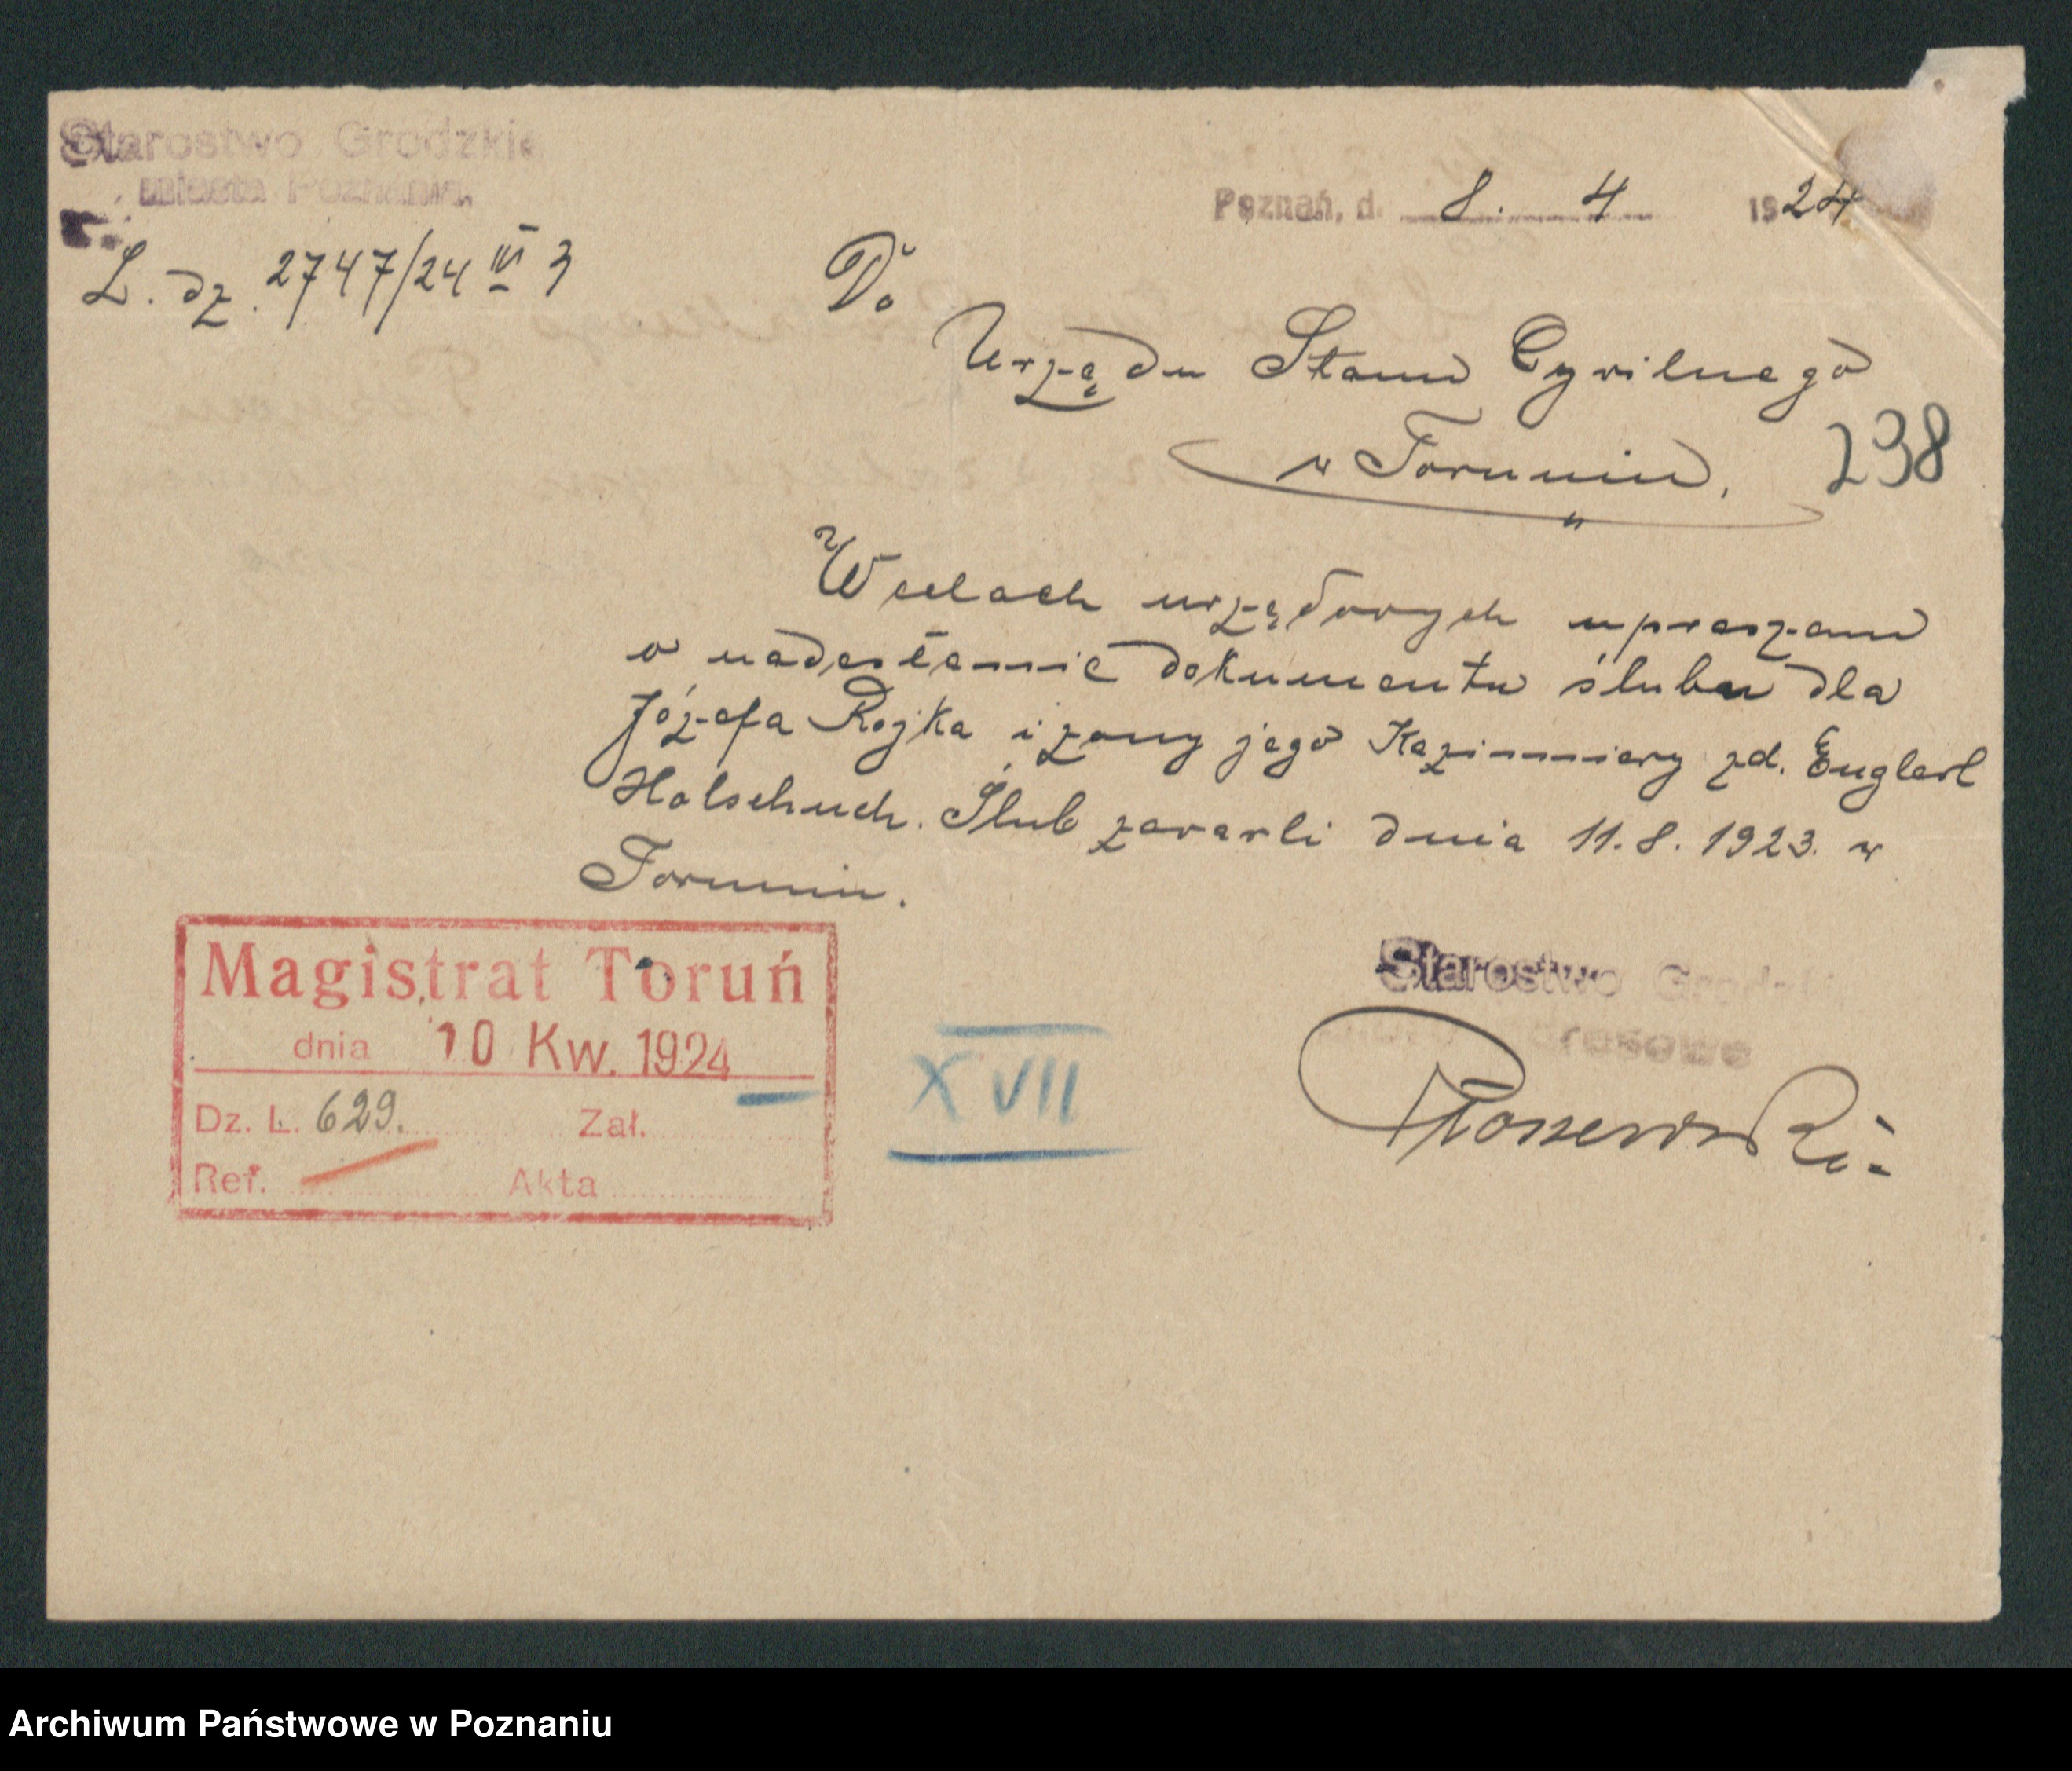 Starostwo Grodzkie
miasta Poznania.
Poznań, d. 8. 4 1924
L. dz. 2747/24 III 3
Do
Urzędu Stanu Cywilnego
w Toruniu.
238
W celach urzędowych upraszam
o nadesłanie dokumentu ślubu dla
Józefa Rojka i żony jego Kazimiery zd. Englert
Holschuch. Ślub zawarli dnia 11.8.1923. w
Toruniu.
Magistrat Toruń
dnia 10 Kw. 1924
Dz. L. 629. Zał.
Ref. Akta
XVII
Starostwo Grodzkie
Archiwum Państwowe w Poznaniu